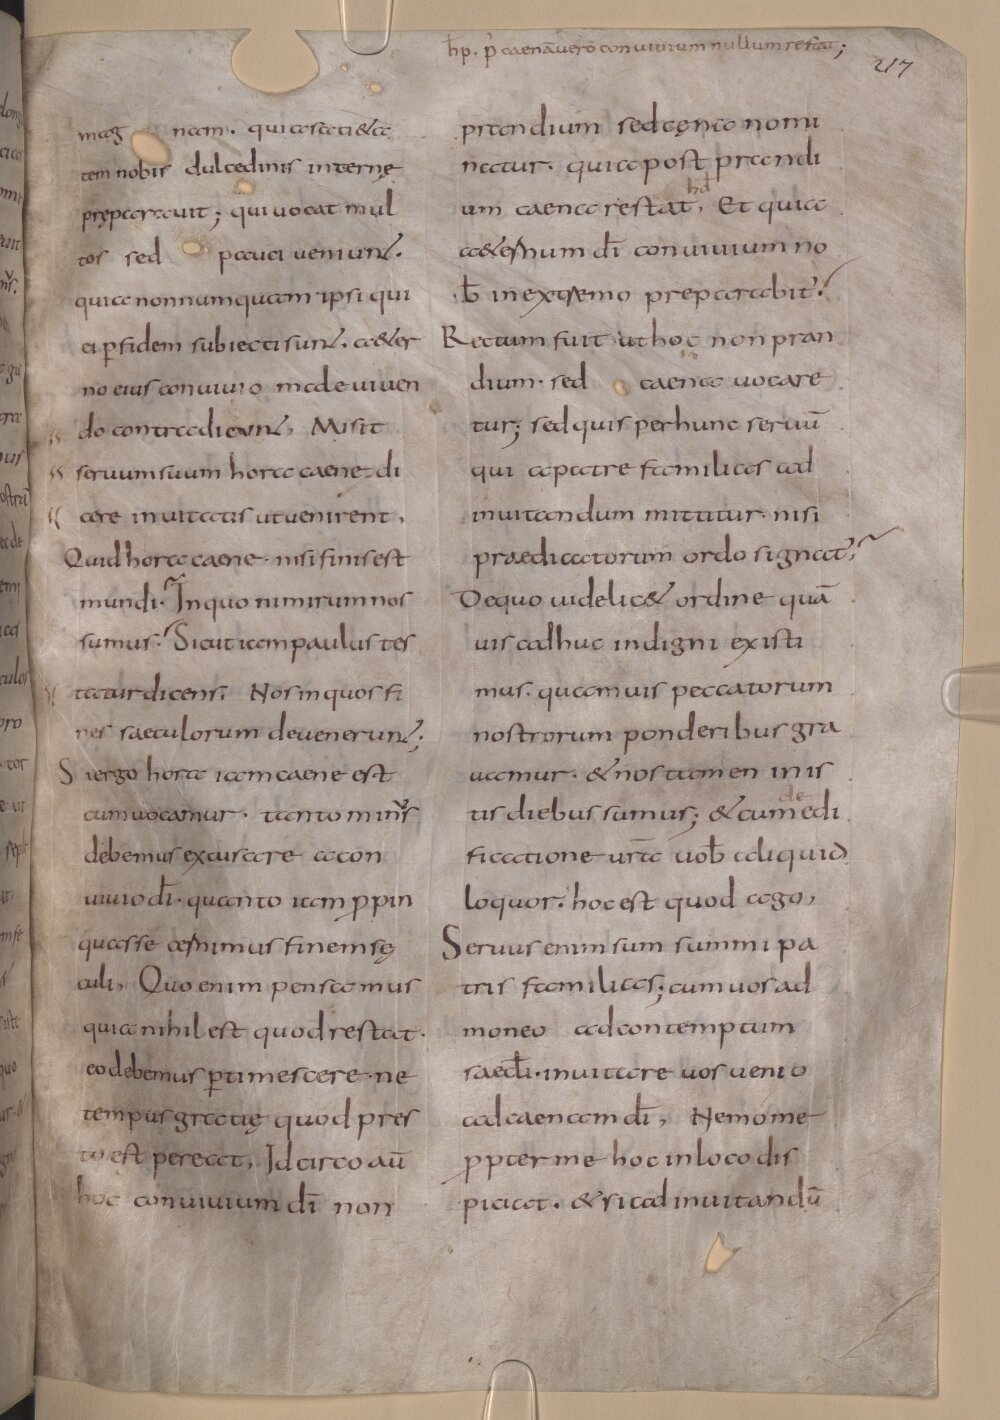 hp. p̄ caenā vero conuiuium nullum restat;
217
mag nam. quia satietа
tem nobis dulcedinis internę
pręparauit; qui uocat mul
tos sed pauci ueniunt.
quia nonnumquam ipsi qui
ei ꝑ fidem subiecti sunt. aeter
no eius conuiuio male uiuen
do contradicunt, Misit
seruum suum hora caenę di
cere inuitatis ut uenirent,
Quid hora caenę nisi finis est
mundi. In quo nimirum nos
sumus. Sicut iam paulus tes
tatur dicens. Nos in quos fi
nes saeculorum deuenerunt;
Si ergo hora iam caenę est
cum uocamur. tanto min᾽
debemus excusare a con
uiuio dī. quanto iam ꝓpin
quasse cernimus finem sę
culi, Quo enim pensamus
quia nihil est quod restat.
eo debemus ꝑtimescere. ne
tempus gratię quod pres
to est pereat, Idcirco aū
hoc conuiuium dī non
prandium sed cęna nomi
natur. quia post prandi
um caena restat, hd Et quia
aeternum dī conuiuium no
b̄ in extremo preparabit.
Rectum fuit ut hoc non pran
dium. sed caena uocare
tur; sed quis per hunc seruū
qui a patre familias ad
inuitandum mittitur. nisi
praedicatorum ordo signat᾽,
De quo uidelicet ordine quā
uis adhuc indigni existi
mus. quamuis peccatorum
nostrorum ponderibus gra
uamur. & nos tamen in is
tis diebus sumus; & cum de edi
ficatione urā uob̄ aliquid
loquor. hoc est quod ago,
Seruus enim sum summi pa
tris familias; cum uos ad
moneo ad contemptum
saecłi. inuitare uos uenio
ad caenam dī, Nemo me
ꝓpter me hoc in loco dis
piciat. & si ad inuitandū